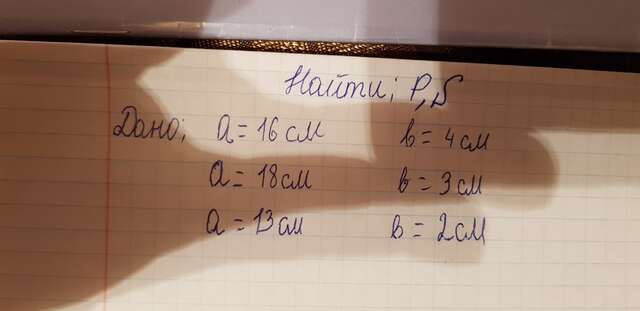 Найти; P, S
Дано; a = 16 см b = 4 см
a = 18 см b = 3 см
a = 13 см b = 2 см